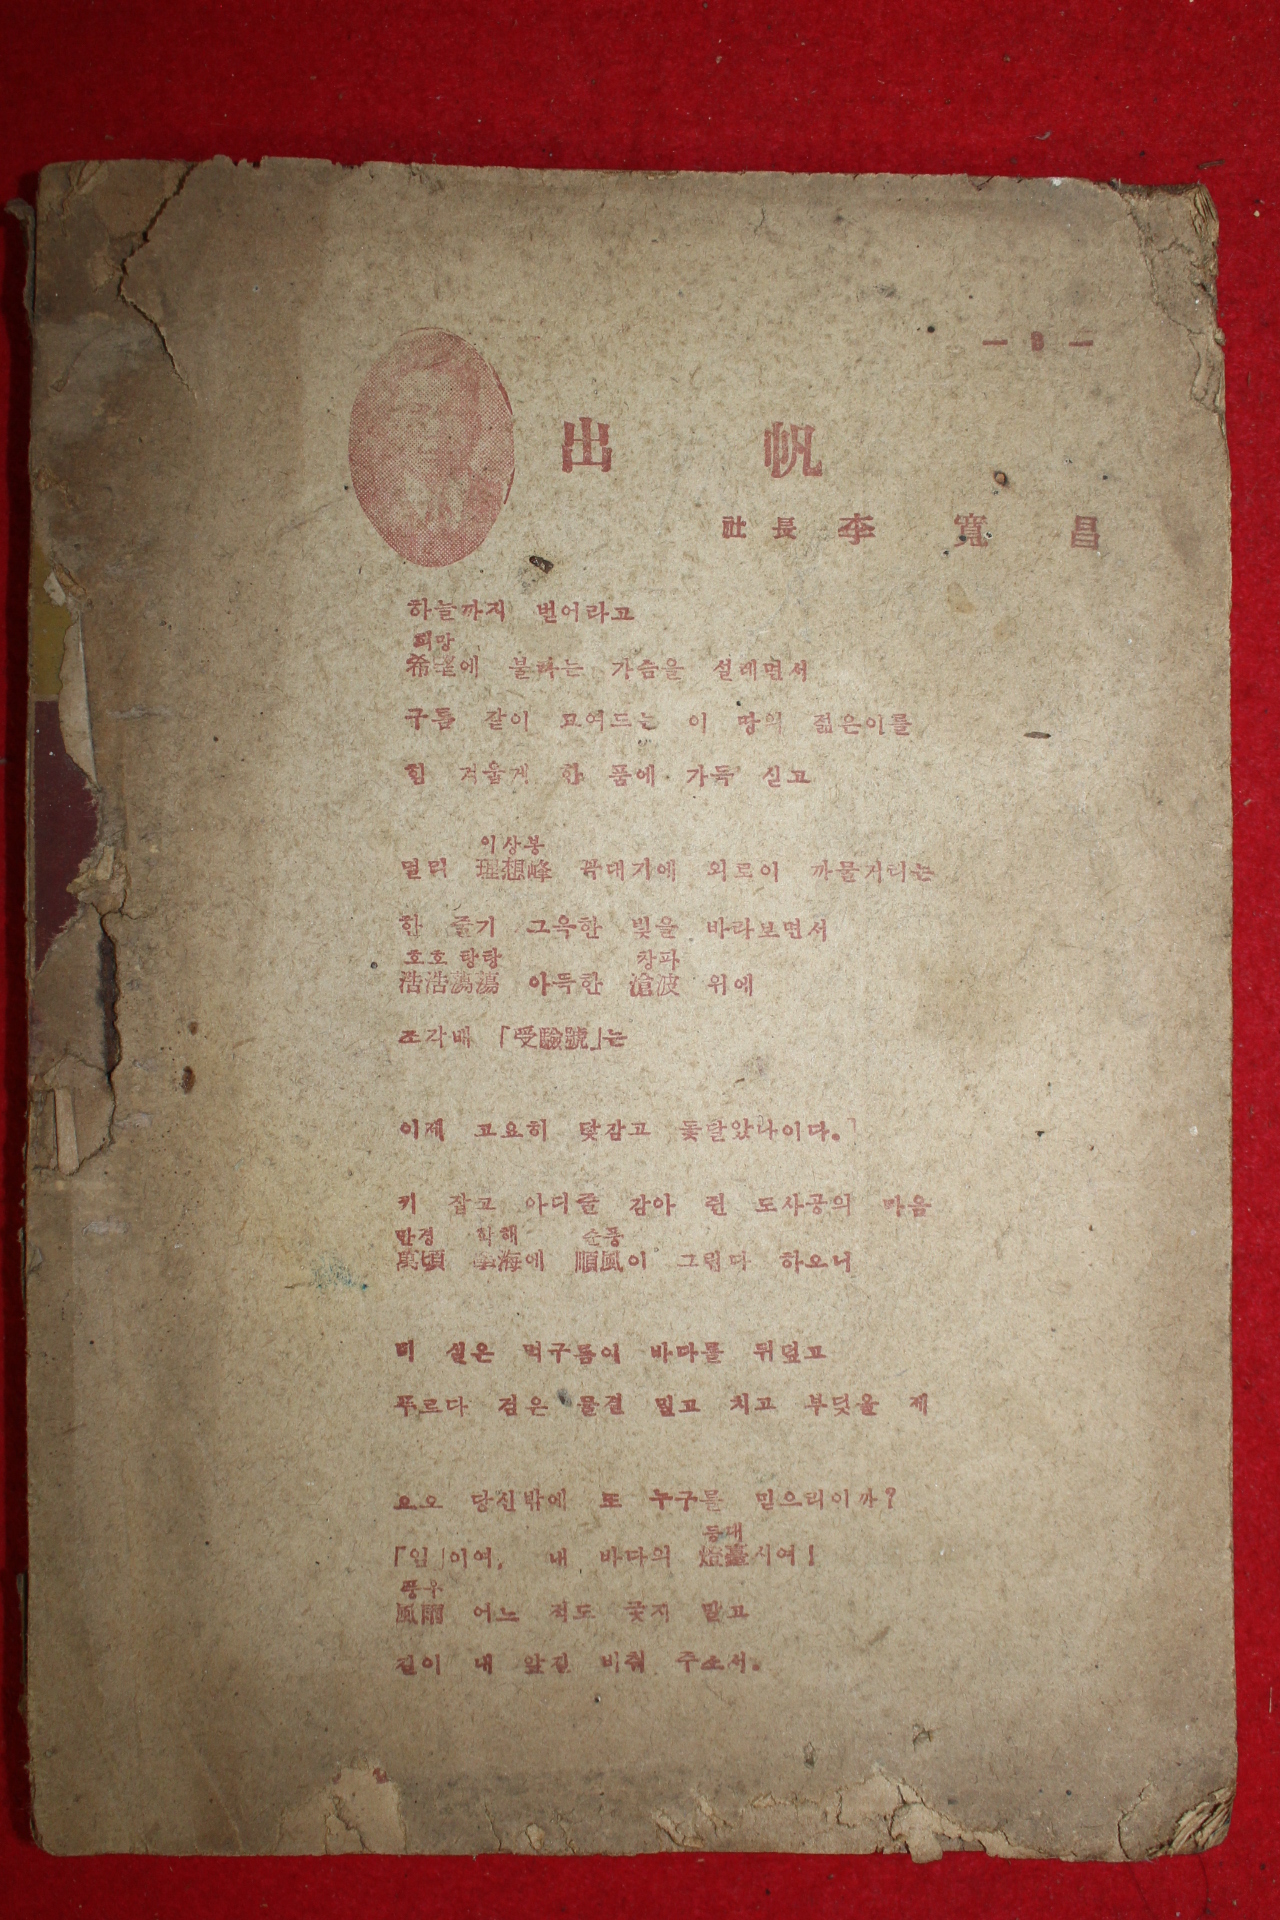 — 3 —
出 帆
社長 李 寬 昌
하늘까지 벋어라고
희망
希望에 불타는 가슴을 설레면서
구름 같이 모여드는 이 땅의 젊은이를
힘 겨웁게 한 품에 가득 싣고
이상봉
멀리 理想峰 꼭대기에 외로이 까물거리는
한 줄기 그윽한 빛을 바라보면서
호호 탕탕 창파
浩浩蕩蕩 아득한 滄波 위에
조각배 「受驗號」는
이제 고요히 닻감고 돛달았나이다.
키 잡고 아디줄 감아 쥔 도사공의 마음
만경 학해 순풍
萬頃 學海에 順風이 그립다 하오니
비 실은 먹구름이 바다를 뒤덮고
푸르다 검은 물결 밀고 치고 부딪울 제
오오 당신밖에 또 누구를 믿으리이까?
등대
「임」이여, 내 바다의 燈臺시여!
풍우
風雨 어느 적도 궂지 말고
길이 내 앞길 비춰 주소서.